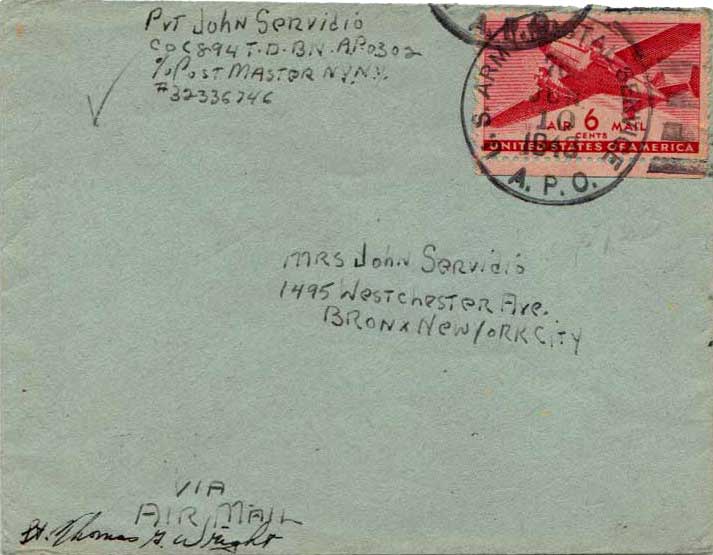 Pvt John Servidio
Co C 894 T.D. BN. APO 302
c/o Post Master N.Y. N.Y.
# 32336746
A.P.O.
U.S. ARMY POSTAL SERVICE
JUN
10
1943
A.P.O.
AIR 6 MAIL
CENTS
UNITED STATES OF AMERICA
MRS John Servidio
1495 Westchester Ave.
Bronx New York City
VIA
AIR MAIL
Lt. Thomas G. Wright